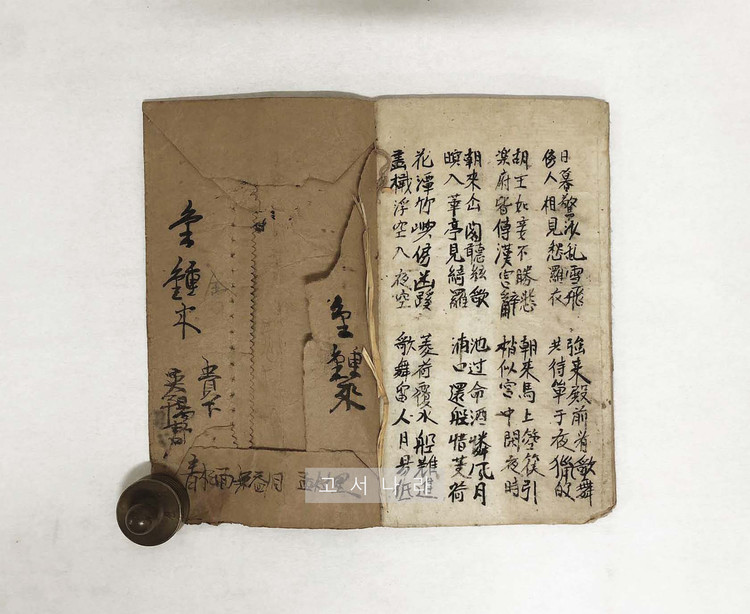 日暮驚沙亂雪飛
傍人相見愁羅衣
強來殿前看歌舞
共待單于夜獵
胡王知妾不勝悲
樂府皆傳漢宮辭
朝來馬上箜篌引
稍似宮中閑夜時
朝來出閣聽絃歌
暝入華亭見綺羅
池过命酒憐風月
浦口還船惜芰荷
花潭竹嶼傍幽蹊
檝浮空入夜空
菱荷覆水船難進
歌舞留人月易低
金鍾來
金
金鍾來
貴下
고서나라